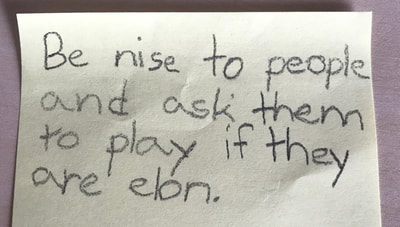 Be nise to people
and ask them
to play if they
are elon.